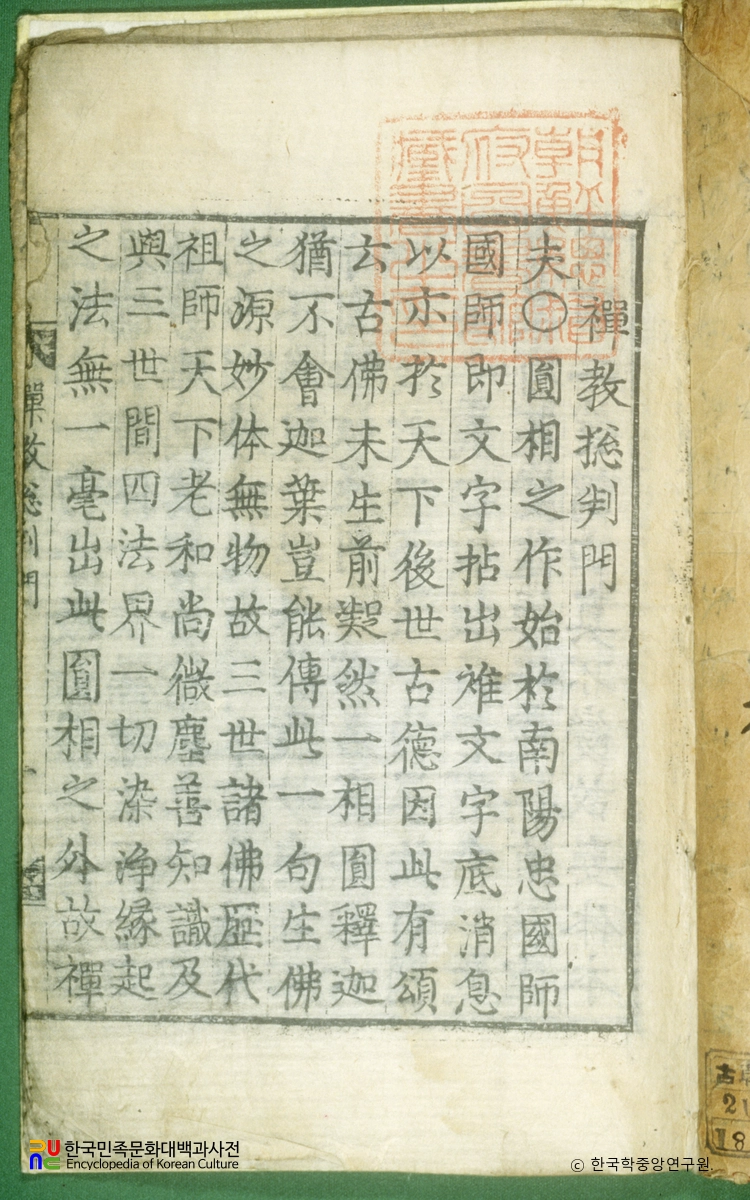 禪教捴判門
夫〇圓相之作始於南陽忠國師
國師即文字拈出離文字底消息
以示於天下後世古德因此有頌
云古佛未生前凝然一相圓釋迦
猶不會迦葉豈能傳此一句生佛
之源妙体無物故三世諸佛歷代
祖師天下老和尚微塵善知識及
與三世間四法界一切染淨緣起
之法無一毫出此圓相之外故禪
禪教捴判門
一
朝鮮總督府圖書館藏書之印
古朝
21
18
한국민족문화대백과사전
Encyclopedia of Korean Culture
© 한국학중앙연구원